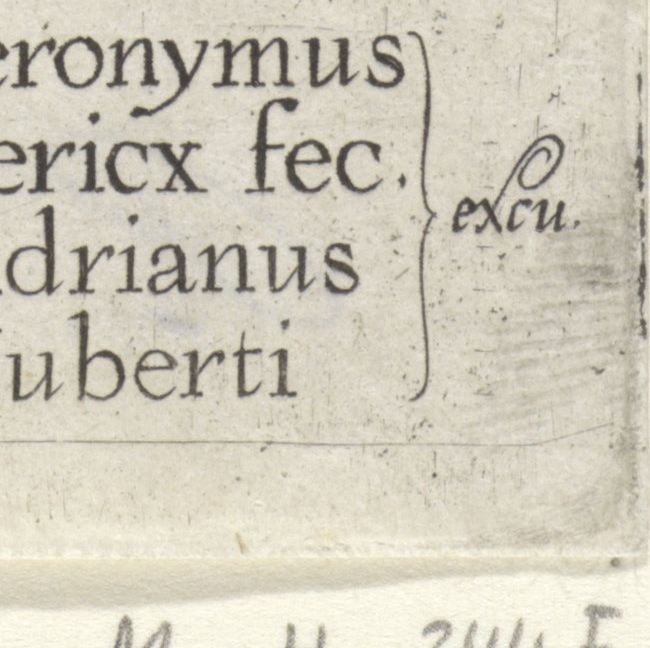 eronymus
ericx fec.
drianus
uberti
excu.